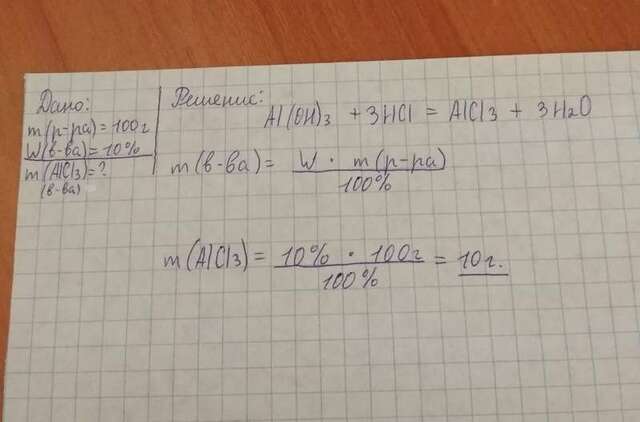 Дано:
m(р-ра) = 100г
W(в-ва) = 10%
m(AlCl3) = ?
(в-ва)
Решение:
Al(OH)3 + 3HCl = AlCl3 + 3H2O
m(в-ва) = W · m(р-ра)
100%
m(AlCl3) = 10% · 100г = 10г.
100%